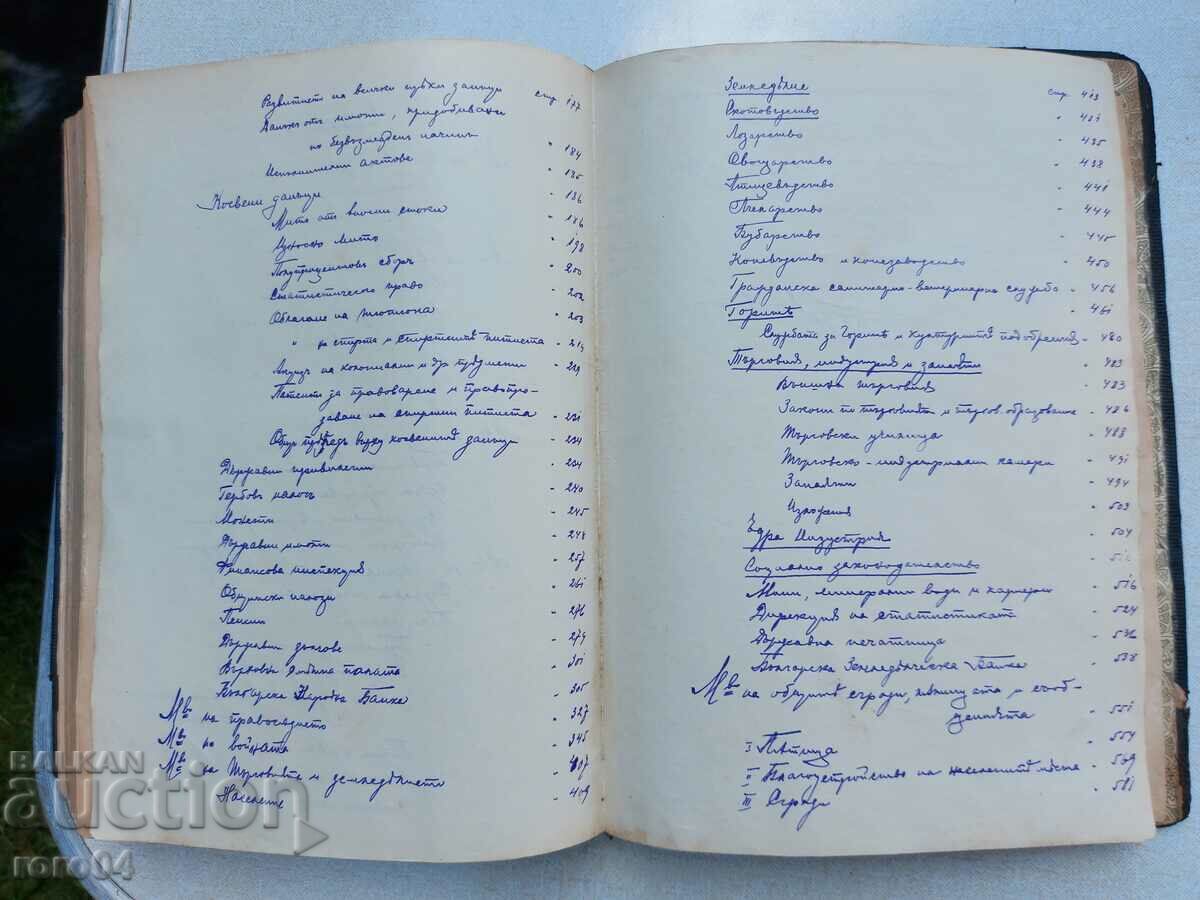 Развитието на всички преки данъци стр. 177
Данъкътъ имоти, придобивани
по безвъзмезденъ начинъ " 184
Изпълнителни листове " 185
Косвени данъци - 186
Мито отъ вносни стоки - 186
Износно мито - 198
Полупроцентовъ сборъ - 200
Статистическо право - 202
Облагане на тютюна - 203
" на спирта и спиртнитѣ питиета - 214
Акцизъ на колониални и др. предмети - 229
Патенти за правоварене и правопро-
даване на спиртни питиета - 231
Общъ прѣгледъ върху косвенитѣ данъци - 234
Държавни привилегии - 234
Гербовъ налогъ - 240
Монети - 245
Държавни имоти - 248
Финансова инспекция - 257
Общински налози - 261
Пенсии - 276
Държавни дългове - 279
Върховна Смѣтна палата - 301
Българска Народна Банка - 305
М-во на правосъдието - 327
М-во на войната - 345
М-во на Търговията и земледѣлието - 407
Население - 409
Земледѣлие стр. 413
Скотовъдство - 421
Лозарство - 435
Овощарство - 438
Птицевъдство - 441
Пчеларство - 444
Бубарство - 445
Коневъдство и конезаводство - 450
Гражданска санитарно-ветеринарна служба - 456
Горитѣ - 461
Службата за Горитѣ и културнитѣ подобрения - 480
Търговия, индустрия и занаяти - 483
Външна търговия - 483
Закони по търговията и търгов. образование - 486
Търговски училища - 488
Търговско-индустриални камари - 491
Занаяти - 494
Изложения - 503
Едра Индустрия - 504
Социално законодателство - 512
Мини, минерални води и кариери - 516
Дирекция на статистиката - 524
Държавна печатница - 536
Българска Земледѣлческа Банка - 538
М-во на общитѣ сгради, пѫтищата и съоб-
щенията - 551
I Пѫтища - 554
II Благоустройство на населенитѣ мѣста - 569
III Сгради - 581
BALKAN
auction
roro04